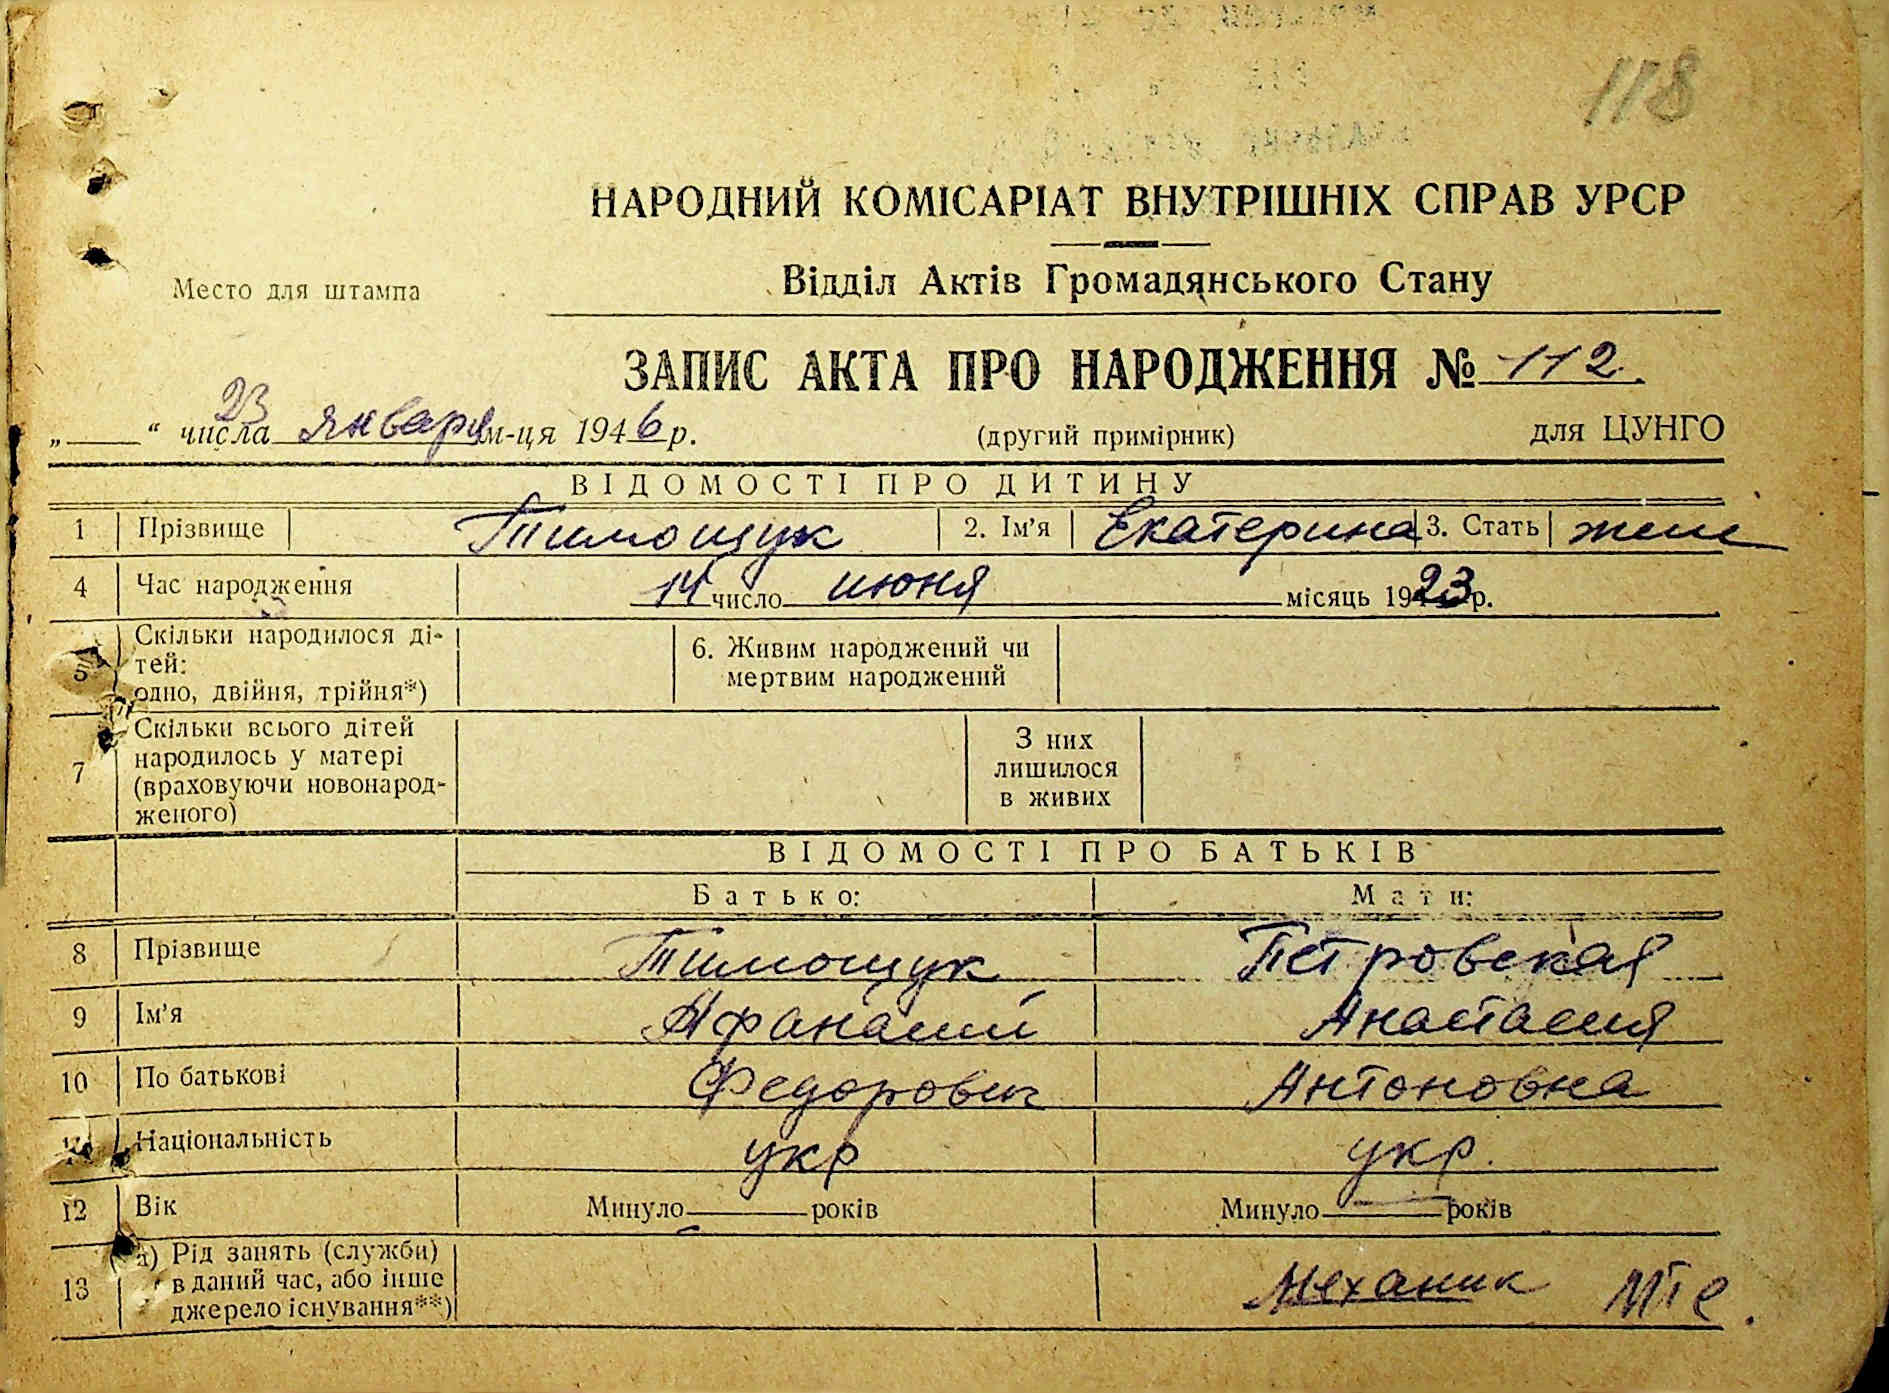 118
НАРОДНИЙ КОМІСАРІАТ ВНУТРІШНІХ СПРАВ УРСР
Место для штампа
Відділ Актів Громадянського Стану
ЗАПИС АКТА ПРО НАРОДЖЕННЯ № 112.
„ “ 23 числа января м-ця 1946 р. (другий примірник) для ЦУНГО
ВІДОМОСТІ ПРО ДИТИНУ
1 Прізвище Тимощук 2. Ім'я Екатерина 3. Стать жен
4 Час народження 14 число июня місяць 1923 р.
5 Скільки народилося ді-
тей:
одно, двійня, трійня*)
6. Живим народжений чи
мертвим народжений
7 Скільки всього дітей
народилось у матері
(враховуючи новонарод-
женого)
З них
лишилося
в живих
ВІДОМОСТІ ПРО БАТЬКІВ
Батько: Мати:
8 Прізвище Тимощук Петровская
9 Ім'я Афанасий Анастасия
10 По батькові Федорович Антоновна
11 Національність укр укр.
12 Вік Минуло років Минуло років
13 а) Рід занять (служби)
в даний час, або інше
джерело існування**)
Механик